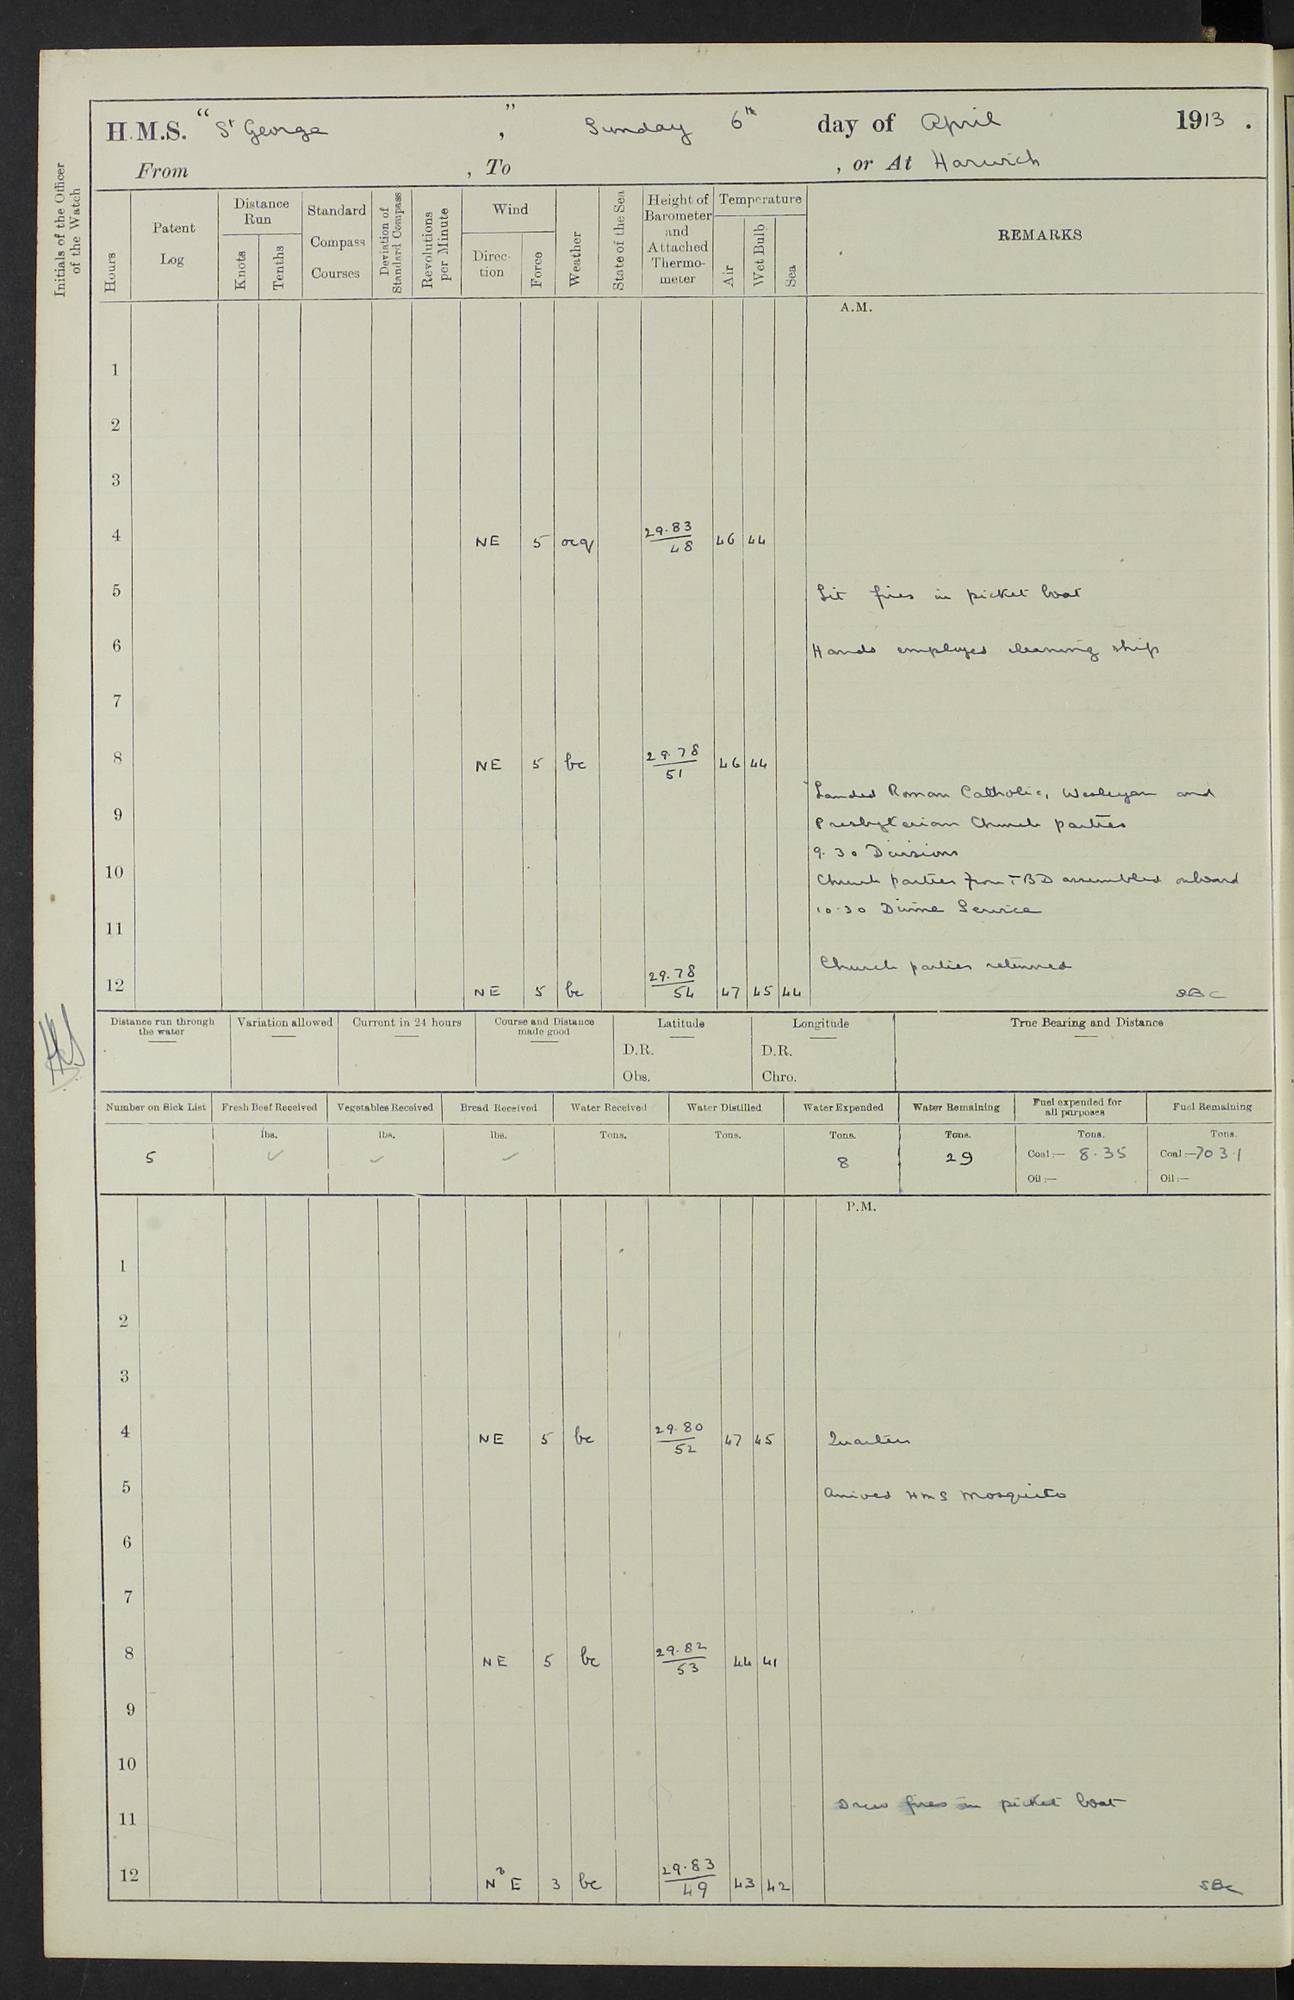 H.M.S. "St George", Sunday 6th day of April 1913.
From , To , or At Harwich
Initials of the Officer of the Watch
Hours
Patent Log
Distance Run
Knots
Tenths
Standard Compass Courses
Deviation of Standard Compass
Revolutions per Minute
Wind
Direction
Force
Weather
State of the Sea
Height of Barometer and Attached Thermometer
Temperature
Air
Wet Bulb
Sea
REMARKS
A.M.
1
2
3
4 NE 5 ocq 29.83/48 46 44
5 Lit fires in picket boat
6 Hands employed cleaning ship
7
8 NE 5 bc 29.78/51 46 44
Landed Roman Catholic, Wesleyan and
9 Presbyterian Church parties
9.30 Divisions
10 Church parties from TBD assembled onboard
10.30 Divine Service
11
Church parties returned
12 NE 5 bc 29.78/54 47 45 44 SBC
Distance run through the water
Variation allowed
Current in 24 hours
Course and Distance made good
Latitude
D.R.
Obs.
Longitude
D.R.
Chro.
True Bearing and Distance
Number on Sick List Fresh Beef Received Vegetables Received Bread Received Water Received Water Distilled Water Expended Water Remaining Fuel expended for all purposes Fuel Remaining
lbs. lbs. lbs. Tons. Tons. Tons. Tons. Tons. Tons.
5 ✓ ✓ ✓ 8 29 Coal:— 8.35 Coal:— 703.1
Oil:— Oil:—
P.M.
1
2
3
4 NE 5 bc 29.80/52 47 45 Quarters
5 Arrived HMS Mosquito
6
7
8 NE 5 bc 29.82/53 44 41
9
10
Drew fires in picket boat
11
12 NbE 3 bc 29.83/49 43 42 SBC